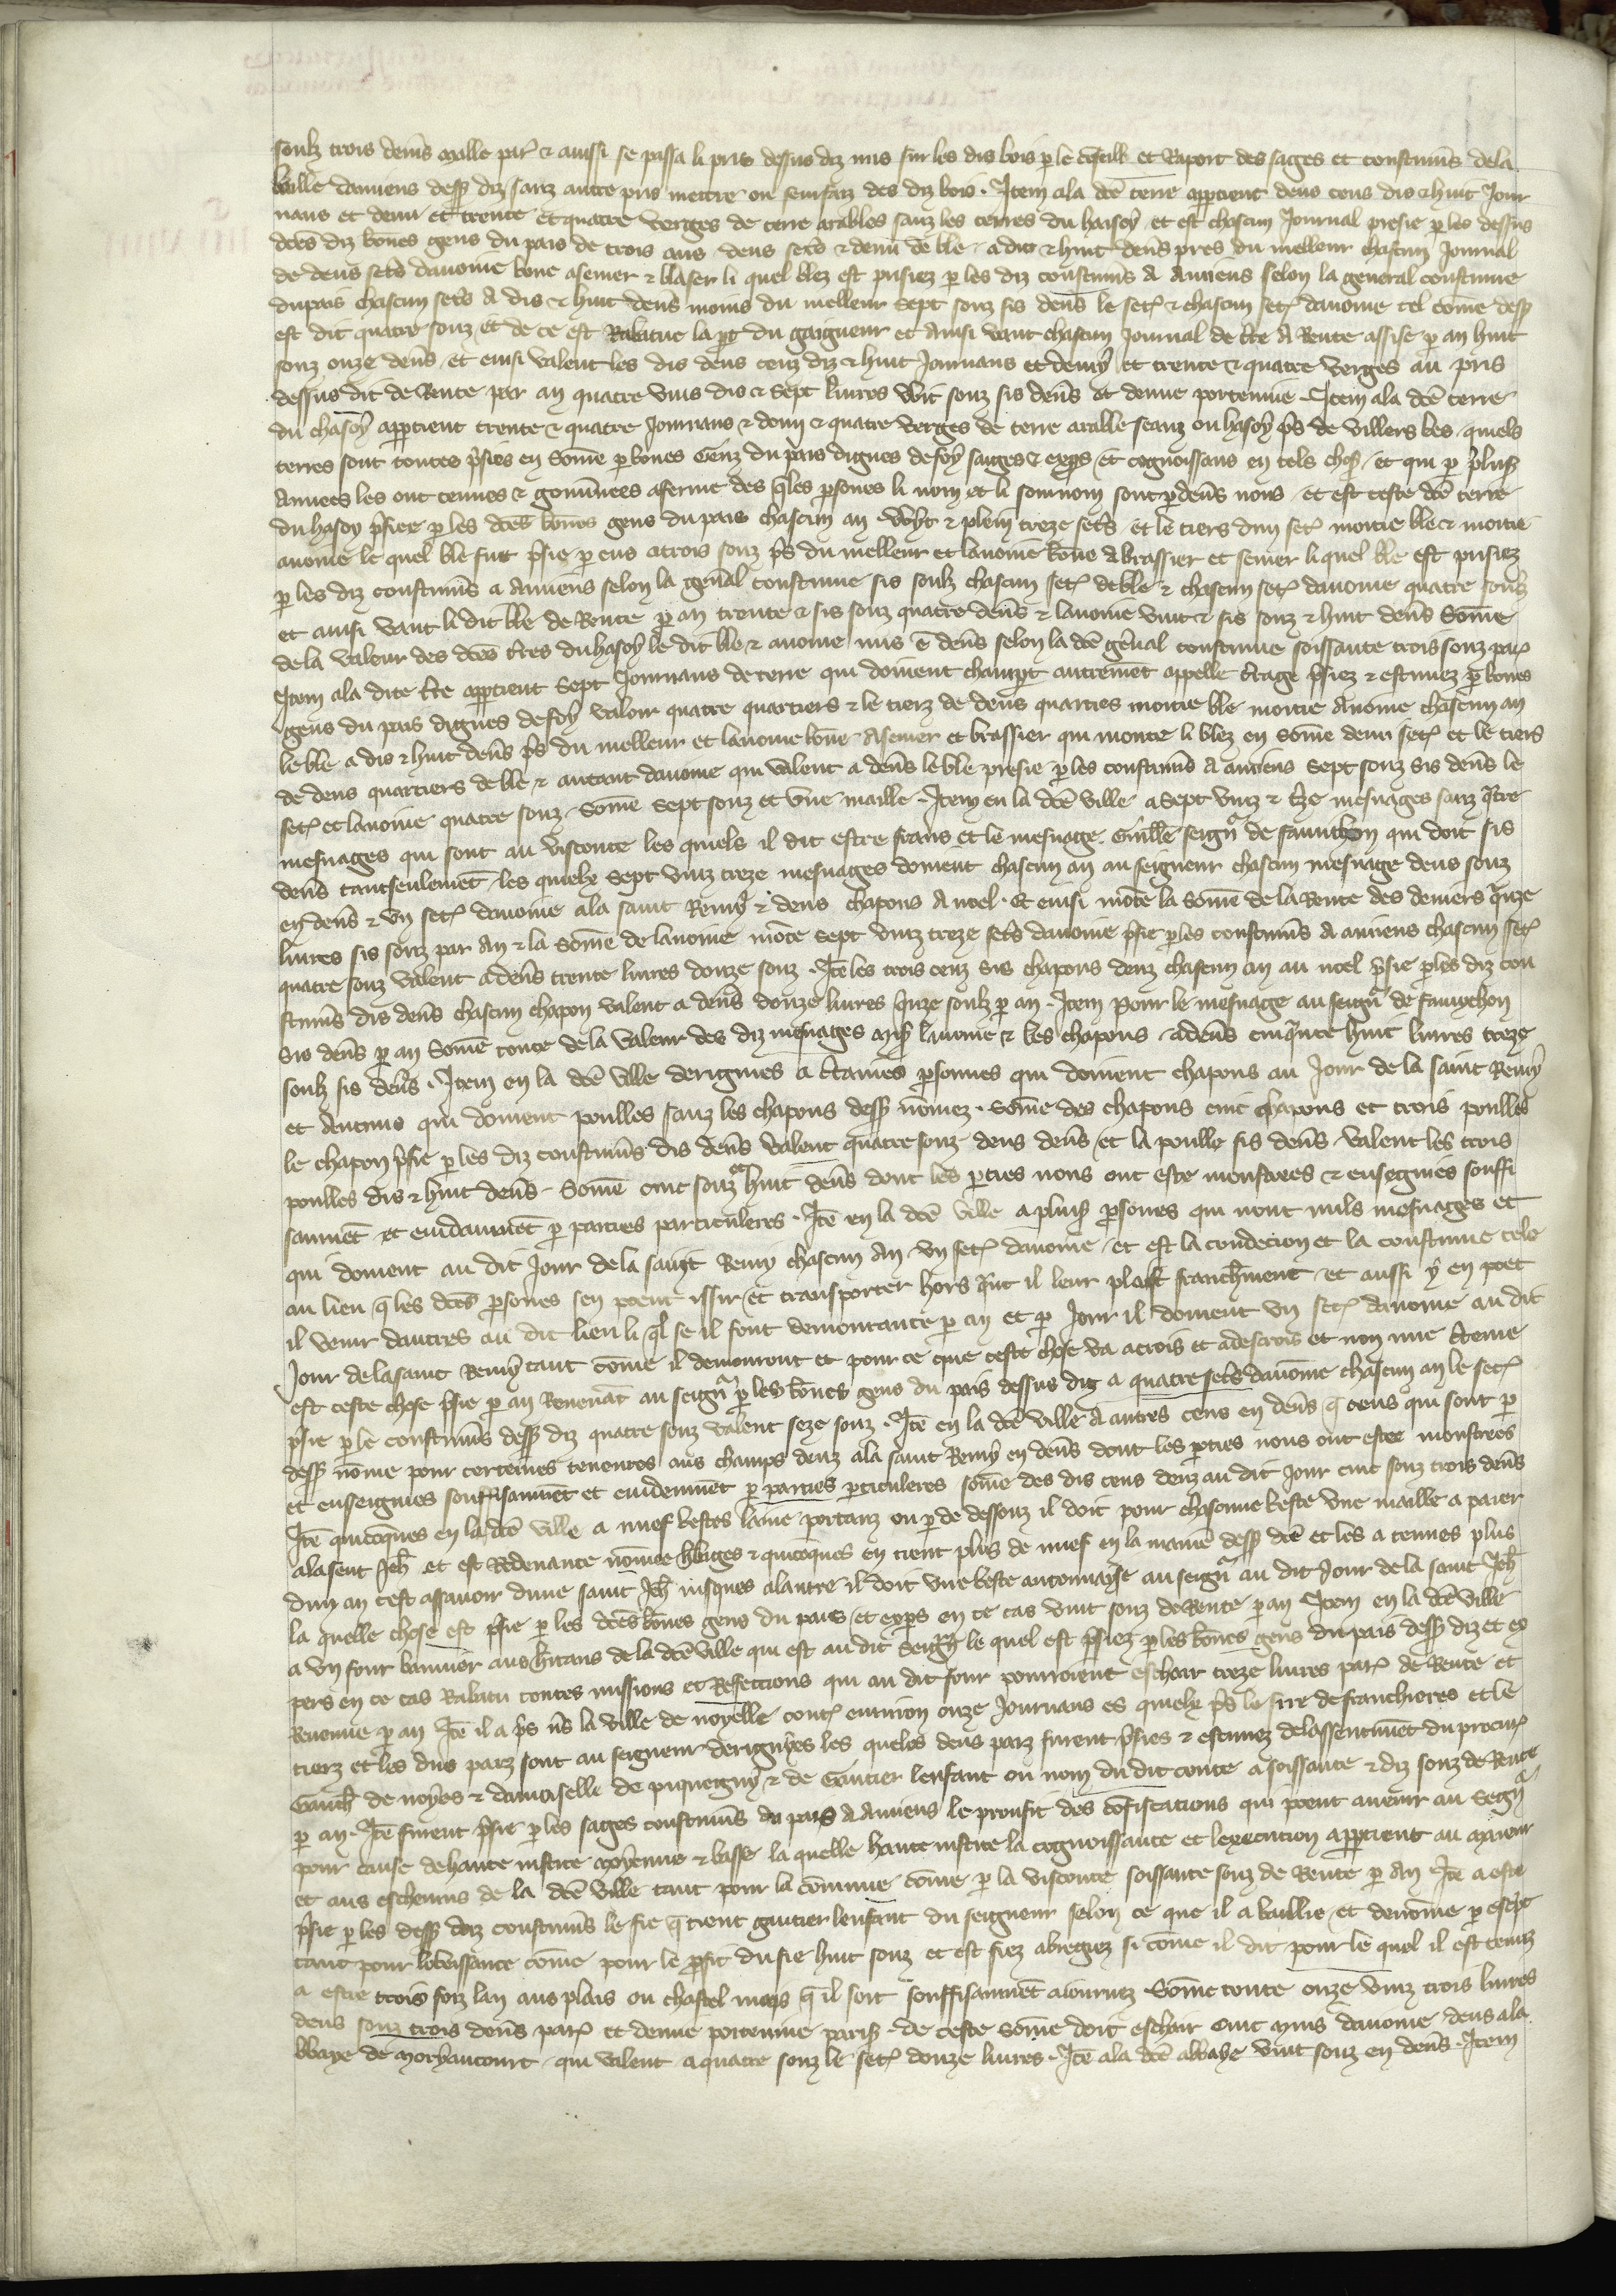 soulz trois den̄s maille par᷒ & aussi se passa li pris dessus diz mis sur les dis bois p le cōseill et Raport des sages et coustum̄s dela
baillie damiens dess diz sanz autre pris mettre ou seurfaiz des diz bois . Item ala dc̄e terre appartient deus cens dis & huit Jour
naus et demi et trente et quatre verges de terre arables sanz les terres du haisoy et est chascun Journal presie p les dessus
dc̄es diz bones gens du pais de trois ans deus setrs & demi de ble a dis & huit den̄s pres du melleur chascun Journal
de deus setrs davoine bone a semer & li quel blez est prisiez p les diz coustum̄s A Amiens selon la general coustume
dupais chascun setrs A dis & huit den̄s moins du melleur sept souz sis den̄s le set᷒ & chascun set᷒ davoine tel com̄e dess
est dit quatre souz et de ce est Rabatue la pt du gaigneur et Ainsi vaut chascun Journal de tr̄e A Rente assise p an huit
souz onze den̄s et ensi valent les dis deus cenz diz & huit Journaus et demy et trente & quatre verges au pris
dessus dit de Rente par an quatre vins dis & sept livres vint souz sis den̄s et demie portemie . Item ala dc̄e terre
du chasoy appartient trente & quatre Journaus & demi & quatre verges de terre arable seanz ou hasoy p̄s de villers les quels
terres sont toutes p̄sies en Som̄e p bones Genz du pais dignes de foy saiges & expers et cognoissans en tels choses et qui p pluss
Annees les ont tenues & gouv̄nees a ferme des q̄les p̄sones li nom et li sournom sont p den̄s nous et est ceste dc̄e terre
du hasoy p̄siee p les dc̄es bones gens du pais chascun an vint & plein treze setrs et le tiers dun set᷒ moitie ble & moitie
avoine le quel ble fut p̄sie p eus a trois souz p̄s du melleur et lavoine bone A brassier et semer li quel ble est prisiez
p les diz coustum̄s a Amiens selon la gen̄al coustume sis soulz chascun set᷒ de ble & chascun set᷒ davoine quatre souz
et ainsi vaut li dit ble de Rente p an trente & sis souz quatre den̄s & lavoine vint & sis souz & huit den̄s Som̄e
de la valeur des dc̄es tr̄es du hasoy le dit ble & avoine mis ē den̄s selon la dc̄e gen̄al coustume soissante trois souz par᷒
Item ala dite tr̄e appartient sept Journaus de terre qui doivent champt autremēt appelle tr̄age p̄siez & estimez p bones
gens du pais dignes de foy valoir quatre quartiers & le tierz de deus quarties moitie ble moitie Avoine chascun an
le ble a dis & huit den̄s p̄s du melleur et lavoine bone A semer et brassier qui monte li blez en som̄e demi set᷒ et le tiers
de deus quartiers de ble & autant davoine qui valent a den̄s le ble presie p les coustum̄s A amiens sept souz sis den̄s le
set᷒ et lavoine quatre souz . Som̄e sept souz et une maille . Item en la dc̄e ville a sept vinz & tr̄ze mesnages sanz q̄tre
mesnages qui sont au visconte les quiels il dit estre frans et le mesnage Guill̄e seigñ de fauuchon qui doit sis
den̄s tantseulemēt les quielx sept vinz treze mesnages doivent chascun an au seigneur chascun mesnage deus souz
en den̄s & un set᷒ davoine ala saint Remy & deus chapons A noel . Et ensi mōte la som̄e de la Rente des deniers q̄nze
livres sis souz par An & la som̄e de lavoine mōte sept vinz treze setrs davoine p̄sie p les coustum̄s A amiens chascun set᷒
quatre souz valent a den̄s trente livres donze souz . Itē les trois cenz sis chapons denz chascun an au noel p̄sie p les diz cou
stum̄s dis den̄s chascun chapon valent a den̄s douze livres q̄nze soulz p an . Item pour le mesnage au seigñ de fauuchon
sis den̄s p an Som̄e toute de la valeur des diz mesnages avec lavoine & les chapons a den̄s cinq̄nte huit livres treze
soulz sis den̄s . Item en la dc̄e ville derignies a c̄taines p̄sonnes qui doivent chapons au Jour de la saint Remy
et Aucuns qui doivent poulles sanz les chapons dess nōmez . Som̄e des chapons cinc chapons et trois poulles
le chapon p̄sie p les diz coustum̄s dis den̄s valent quatre souz deus den̄s et la poulle sis den̄s valent les trois
poulles dis & huit den̄s . Som̄e cinc souz huit den̄s dont les pties nous ont este monstrees & enseignies souffi
samment et evidaument p parties particuleres . Itē en la dc̄e ville a pluss p̄sones qui nont nuls mesnages et
qui doivent au dit Jour de la saint Remy chascun An un set᷒ davoine et est la condecion et la coustume tele
au lieu q̄ les dc̄es p̄sones sen peent issir et transporter hors q̄nt il leur plaist franchement et aussi y en poet
il venir dautres au dit lieu li q̄l se il font demourance p an et p Jour il doivent un set᷒ davoine au dit
Jour de la saint Remy tant com̄e il demourront et pour ce que ceste chose va acrois et a descrois et non mie c̄teine
est ceste chose p̄sie p an Revenāt au seigñ p les bones gens du pais dessus diz a quatre setrs davoine chascun an le set᷒
p̄sie p le coustum̄s dess diz quatre souz valent seze souz . Itē en la dc̄e ville A autres cens en den̄s q̄ ceus qui sont p
dess nōme pour certeines tenences aus champs denz ala saint Remy en den̄s dont les pties nous ont estee monstrees
et enseignies souffisamēt et evidemment p parties pticuleres som̄e des dis cens denz au dit Jour cinc souz trois den̄s
Itē quicōques en la dc̄e ville a nuef bestes laine portanz ou p de dessouz il doit pour chascune beste une maille a paier
ala sent Jeh̄ et est Redevance nōmee h̄bages & quicōques en tient plus de nuef en la manie dess dc̄e et les a tenues plus
dun an cest assavoir dune saint Jeh̄ jusques a lautre il doit une beste antennayse au seigñ au dit Jour de la saint Jeh̄
la quelle chose est p̄sie p les dc̄es bones gens du pais et expers en ce cas vint souz de Rente p an Item en la dc̄e ville
a un four bannier aus h̄itans de la dc̄e ville qui est au dit seigñ le quel est p̄siez p les bones gens du pais dess diz et ex
pers en ce cas Rabatu toutes missions et Refections qui au dit four pourroient eschoir treze livres par᷒ de Rente et
Revenue p an Itē il a p̄s v̄s la ville de noyelle cont᷒ environ onze Journaus es quielx p̄t le sire de franchieres et le
tierz et les deus parz sont au seigneur derignyes les queles deus parz furent p̄sies & estimez de lassentimēt du procur᷒
Gauch̄ de noyes & damoiselle de piquegny & de Gautier lenfant ou nom du dit conte a soissante & diz souz de Rente
p an . Itē furent p̄sie p les sages coustum̄s du pais A Amiens le proufit des cōfiscations qui peent avenir au seigñ
pour cause de haute justice moyenne & basse la quelle haute justice la cognoissance et lexecution appartient au maieur
et aus eschevins de la dc̄e ville tant pour la cōmune cōme p la visconte soissante souz de Rente p An Itē a este
p̄sie p les dess diz coustum̄s le fie q̄ tient gautier lenfant du seigneur selon ce que il a baillie et denōme p escrpt
tant pour lobeissance cōme pour le p̄fit du fie huit souz et est fiez abregiez si cōme il dit pour le quel il est tenuz
a estre trois foiz lan aus plais ou chastel mais q̄ il soit souffisanmēt aiournez Som̄e toute onze vinz trois livres
deus souz trois den̄s par᷒ et demie portemie paris . de ceste som̄e doit eschair cinc muis davoine deus ala
bbaye de moryaucourt qui valent a quatre souz le set᷒ douze livres . Itē ala dc̄e abbaye vint souz en den̄s . Item